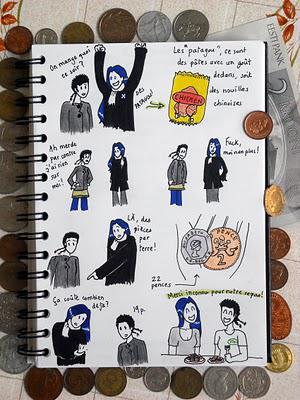 On mange quoi
ce soir?
DES
PATAGOU!
Les "patagou", ce sont
des pâtes avec un goût
dedans, soit
des nouilles
chinoises
CHICKEN
Ah merde
par contre
j'ai rien
sur
moi!
Fuck,
moi non plus!
Là, des
pièces
par
terre!
PENCE
2
22
pences
Ça coûte combien
déjà?
19p
Merci inconnu pour notre repas!
EESTI PANK